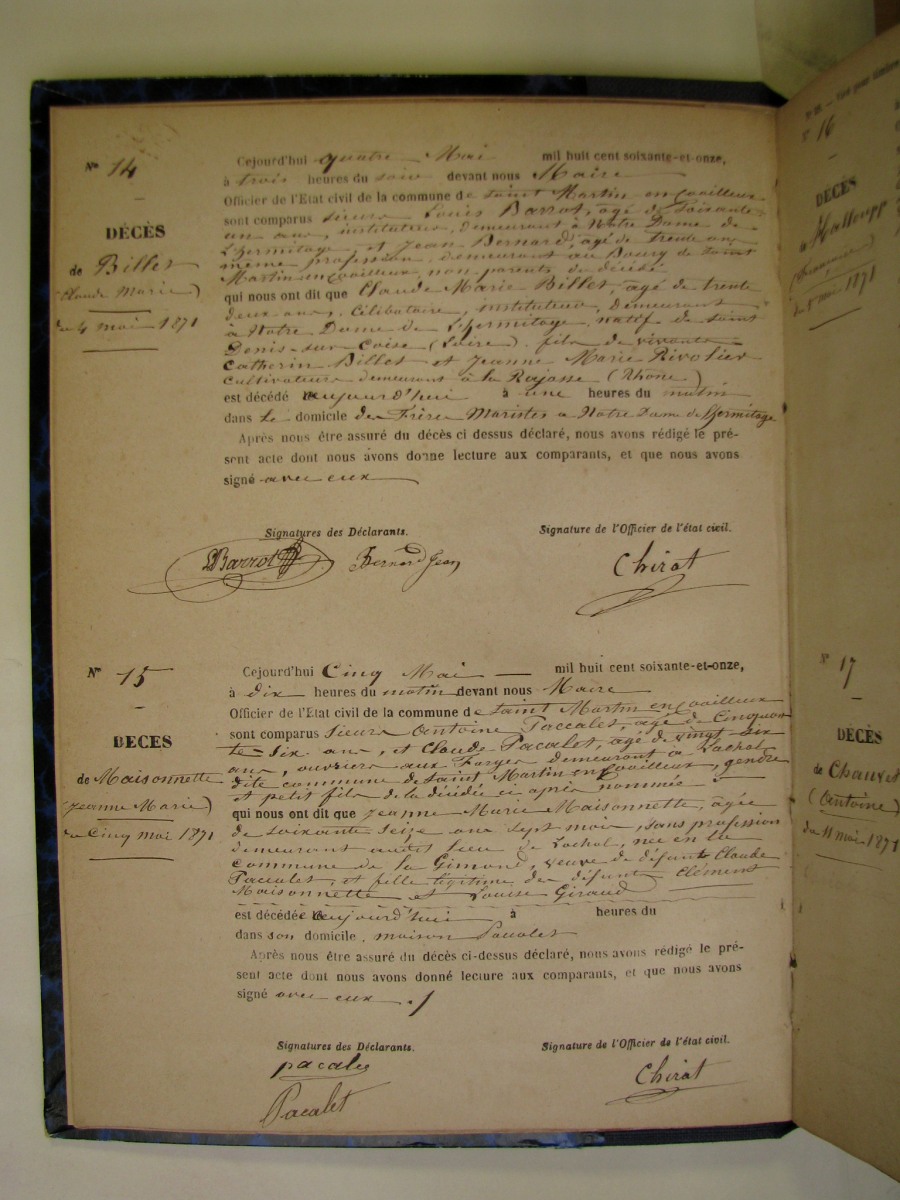 N° 14
DÉCÈS
de Billet
(Claude Marie)
du 4 mai 1871
Cejourd'hui quatre Mai mil huit cent soixante-et-onze,
à trois heures du soir devant nous Maire
Officier de l'Etat civil de la commune de Saint Martin en Coailleux
sont comparus sieurs Louis Barrot, agé de soixante
un ans, instituteur, demeurant à Notre Dame de
L'hermitage, et Jean Bernard, agé de trente ans
même profession, demeurant au Bourg de Saint
Martin en Coailleux, non parents du décédé
qui nous ont dit que Claude Marie Billet, agé de trente
deux ans, célibataire, instituteur, demeurant
à Notre Dame de L'hermitage, natif de Saint
Denis-sur Coise (Loire), fils de vivants
Catherin Billet et Jeanne Marie Rivolier
cultivateurs demeurant à la Rajasse (Rhône)
est décédé aujourd'hui à une heures du matin
dans le domicile des Frères Maristes à Notre Dame de L'hermitage
Après nous être assuré du décès ci dessus déclaré, nous avons rédigé le pré-
sent acte dont nous avons donné lecture aux comparants, et que nous avons
signé avec eux
Signatures des Déclarants.
Signature de l'Officier de l'état civil.
LBarrot Bernard Jean
Chirat
N° 15
DÉCÈS
de Maisonnette
(Jeanne Marie)
du Cinq mai 1871
Cejourd'hui Cinq Mai mil huit cent soixante-et-onze,
à dix heures du matin devant nous Maire
Officier de l'Etat civil de la commune de Saint Martin en Coailleux
sont comparus sieurs Antoine Paccalet, agé de Cinquan
te six ans, et Claude Pacalet, agé de vingt six
ans, ouvriers aux Forges demeurant à Lachal
dite commune de Saint Martin en Coailleux, gendre
et petit fils de la décédée ci après nommée
qui nous ont dit que Jeanne Marie Maisonnette, agée
de soixante seize ans sept mois, sans profession
demeurant audit lieu de Lachal, née en la
commune de la Gimond, veuve de défunt Claude
Paccalet, et fille légitime des défunts Clément
Maisonnette et Louise Giraud
est décédée aujourd'hui à heures du
dans son domicile, maison Paccalet
Après nous être assuré du décès ci-dessus déclaré, nous avons rédigé le pré-
sent acte dont nous avons donné lecture aux comparants, et que nous avons
signé avec eux
Signatures des Déclarants.
Signature de l'Officier de l'état civil.
pacalet
Pacalet
Chirat
N° 16
DÉCÈS
du 5 mai 1871
N° 17
DÉCÈS
de Chauvet
(Antoine)
du 11 mai 1871